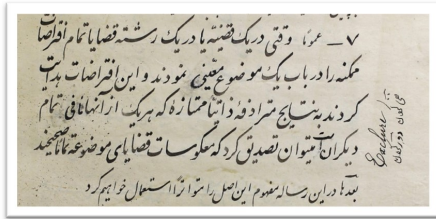 ۷ـ عموماً وقتی در یک قضیه یا در یک رشته قضایا تمام افتراضات
ممکنه را در باب یک موضوع معینی نمودند و این افتراضات بدایت
کردند به نتایج مترادفه ذاتاً ممتازه که هر یک از آنها نافی تمام
دیگران است میتوان تصدیق کرد که معکوسات قضایای موضوعه تماماً صحیحند
بعدها در این رساله مفهوم این اصل را متواتراً استعمال خواهیم کرد
Exclure